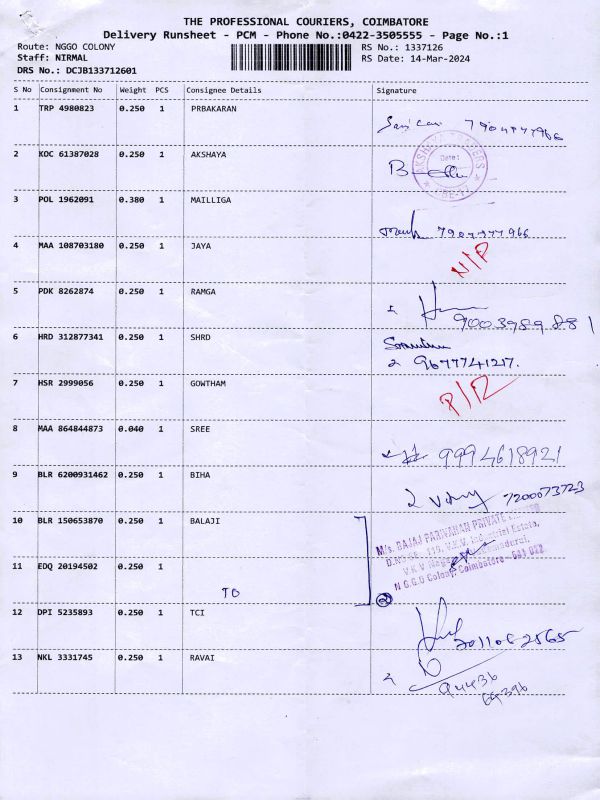 THE PROFESSIONAL COURIERS, COIMBATORE
Delivery Runsheet - PCM - Phone No.:0422-3505555 - Page No.:1
Route: NGGO COLONY RS No.: 1337126
Staff: NIRMAL RS Date: 14-Mar-2024
DRS No.: DCJB133712601
S No Consignment No Weight PCS Consignee Details Signature
1 TRP 4980823 0.250 1 PRBAKARAN
2 KOC 61387028 0.250 1 AKSHAYA
AKSHAYA
Date:
3 POL 1962091 0.380 1 MAILLIGA
4 MAA 108703180 0.250 1 JAYA N/P
5 PDK 8262874 0.250 1 RAMGA
9003989881
6 HRD 312877341 0.250 1 SHRD
9677741217.
7 HSR 2999056 0.250 1 GOWTHAM
8 MAA 864844873 0.040 1 SREE 9994618921
9 BLR 6200931462 0.250 1 BIHA 7200073723
10 BLR 150653870 0.250 1 BALAJI
M/s. BAJAJ PARIVAHAN PRIVATE LIMITED
Industrial Estate,
11 EDQ 20194502 0.250 1
N.G.G.O Colony, Coimbatore - 641 022
TO
2
12 DPI 5235893 0.250 1 TCI
13 NKL 3331745 0.250 1 RAVAI
94436
69396